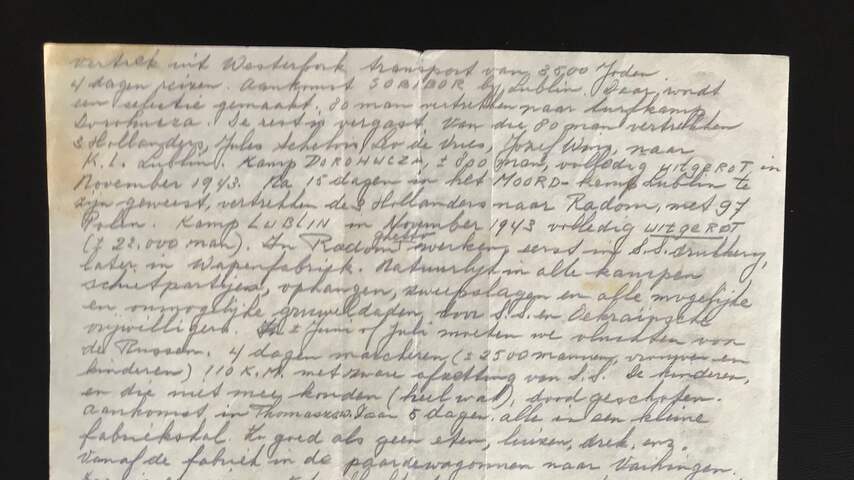 vertrek uit Westerbork transport van 3500 Joden
4 dagen reizen. Aankomst SOBIBOR bij Lublin. Daar, wordt
een selectie gemaakt. 80 man vertrekken naar turfkamp
Dorohucza. De rest is vergast. Van die 80 man vertrekken
3 Hollanders, Jules Schelvis, Leo de Vries, Jozef Wins, naar
K.L. Lublin. Kamp DOROHUCZA, ± 800 man, volledig UITGEROT in
November 1943. Na 15 dagen in het MOORD-kamp Lublin te
zijn geweest, vertrekken de 3 Hollanders naar Radom, met 97
Polen. Kamp LUBLIN in November 1943 volledig UITGEROT
(± 22.000 man). In Radom ghetto werken eerst in S.S. drukkery,
later in Wapenfabriek. Natuurlijk in alle kampen
schietpartijen, ophangen, zweepslagen en alle mogelijke
en onmogelijke gruweldaden, door S.S. en Oekraïnsche
vrijwilligers. ± Juni of Juli moeten we vluchten voor
de Russen. 4 dagen marcheren (± 2500 mannen, vrouwen en
kinderen) 110 K.M. met zware afzetting van S.S. De kinderen,
en die niet mee konden (heel wat), dood geschoten.
Aankomst in Thomaszow. Daar 5 dagen. alle in een kleine
fabriekshal. Zo goed als geen eten, luizen, drek, enz.
Vanaf de fabriek in de paardewagonnen naar Vaihingen.